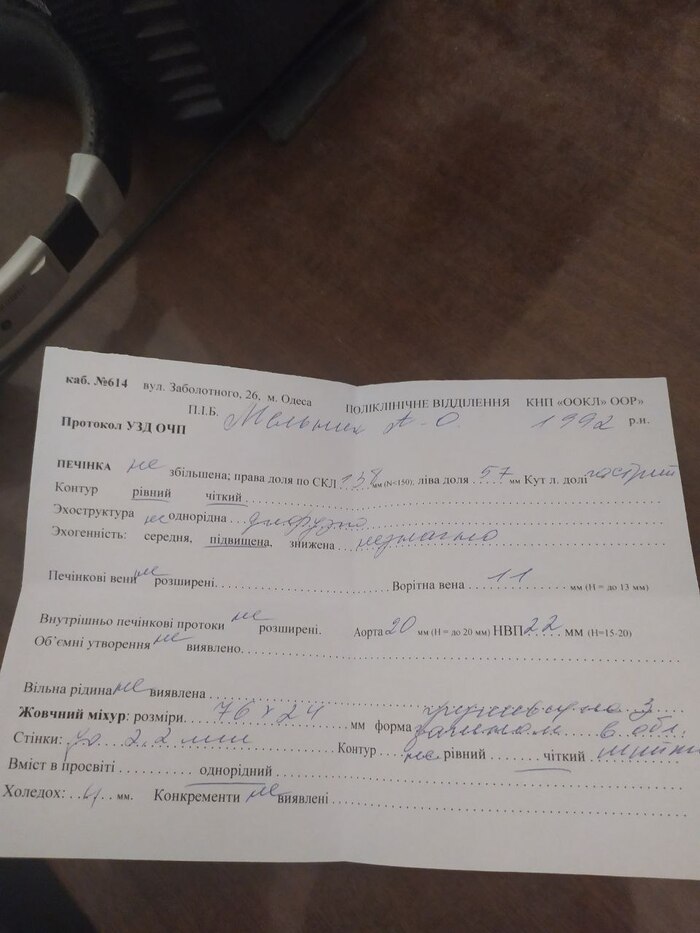 каб. №614 вул. Заболотного, 26, м. Одеса ПОЛІКЛІНІЧНЕ ВІДДІЛЕННЯ КНП «ООКЛ» ООР»
П.І.Б. Мельник А-О. 1992 р.н.
Протокол УЗД ОЧП
ПЕЧІНКА не збільшена; права доля по СКЛ мм (N<150); ліва доля 57 мм Кут л. долі
Контур рівний чіткий
Эхоструктура не однорідна дифузно
Эхогенність: середня, підвищена, знижена незначно
Печінкові вени не розширені. Ворітна вена 11 мм (Н = до 13 мм)
Внутрішньо печінкові протоки не розширені. Аорта 20 мм (Н = до 20 мм) НВП 22 мм (Н=15-20)
Об'ємні утворення не виявлено.
Вільна рідина не виявлена
Жовчний міхур: розміри 76 x 24 мм форма в обл.
Стінки: 2,2 мм Контур не рівний чіткий шийки
Вміст в просвіті однорідний
Холедох: 4 мм. Конкременти не виявлені